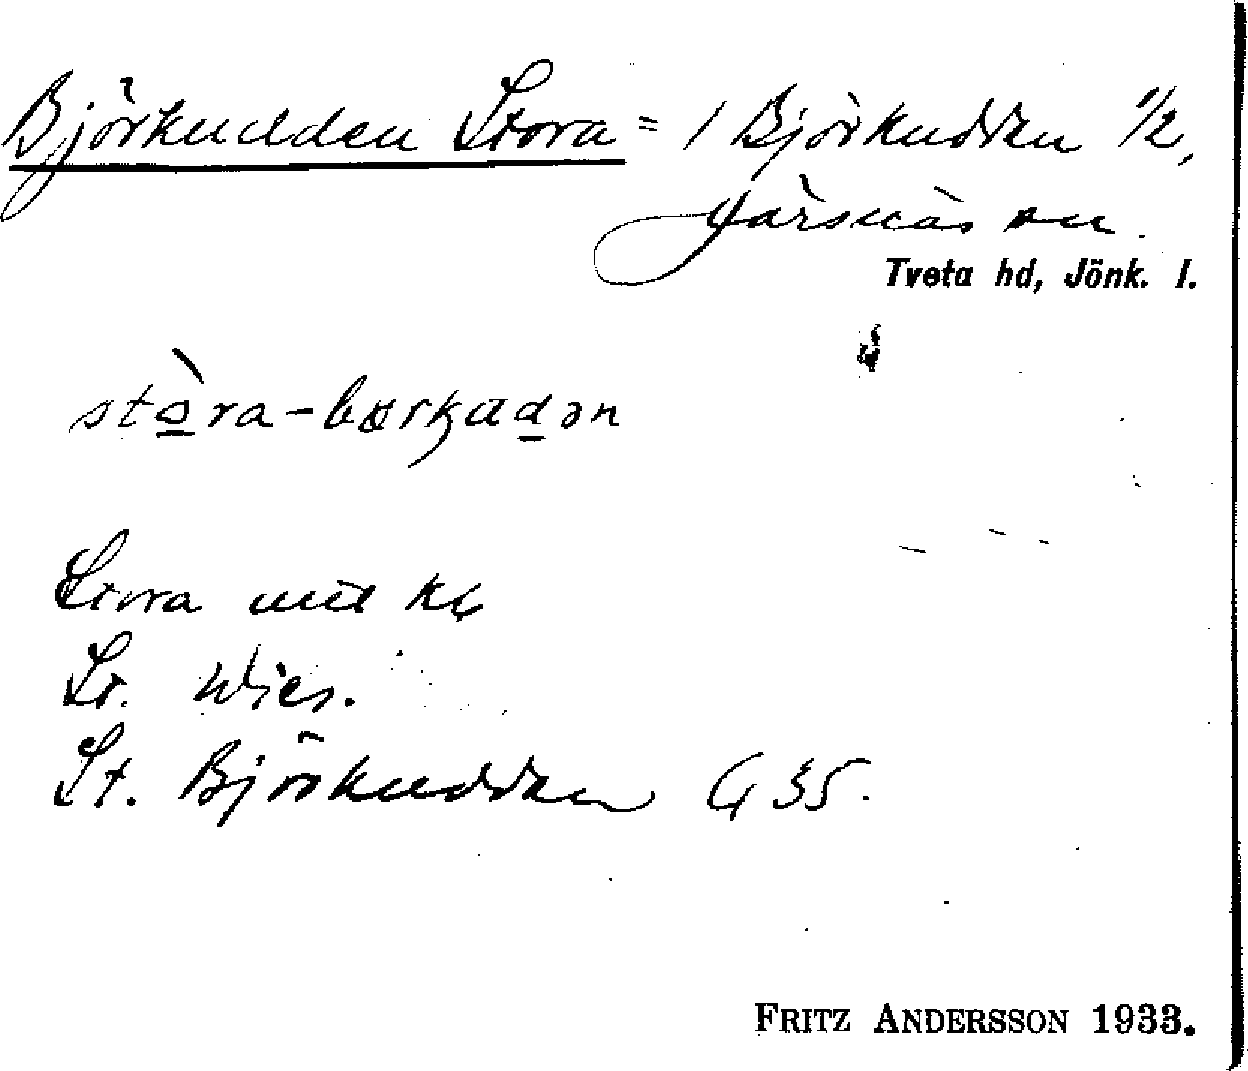 Björkudden Stora = 1 Björkudden 1/2,
Järsnäs sn.
Tveta hd, Jönk. l.
stòra-børkudən
Stora
St. Wies.
St. Björkudden G 35.
FRITZ ANDERSSON 1933.